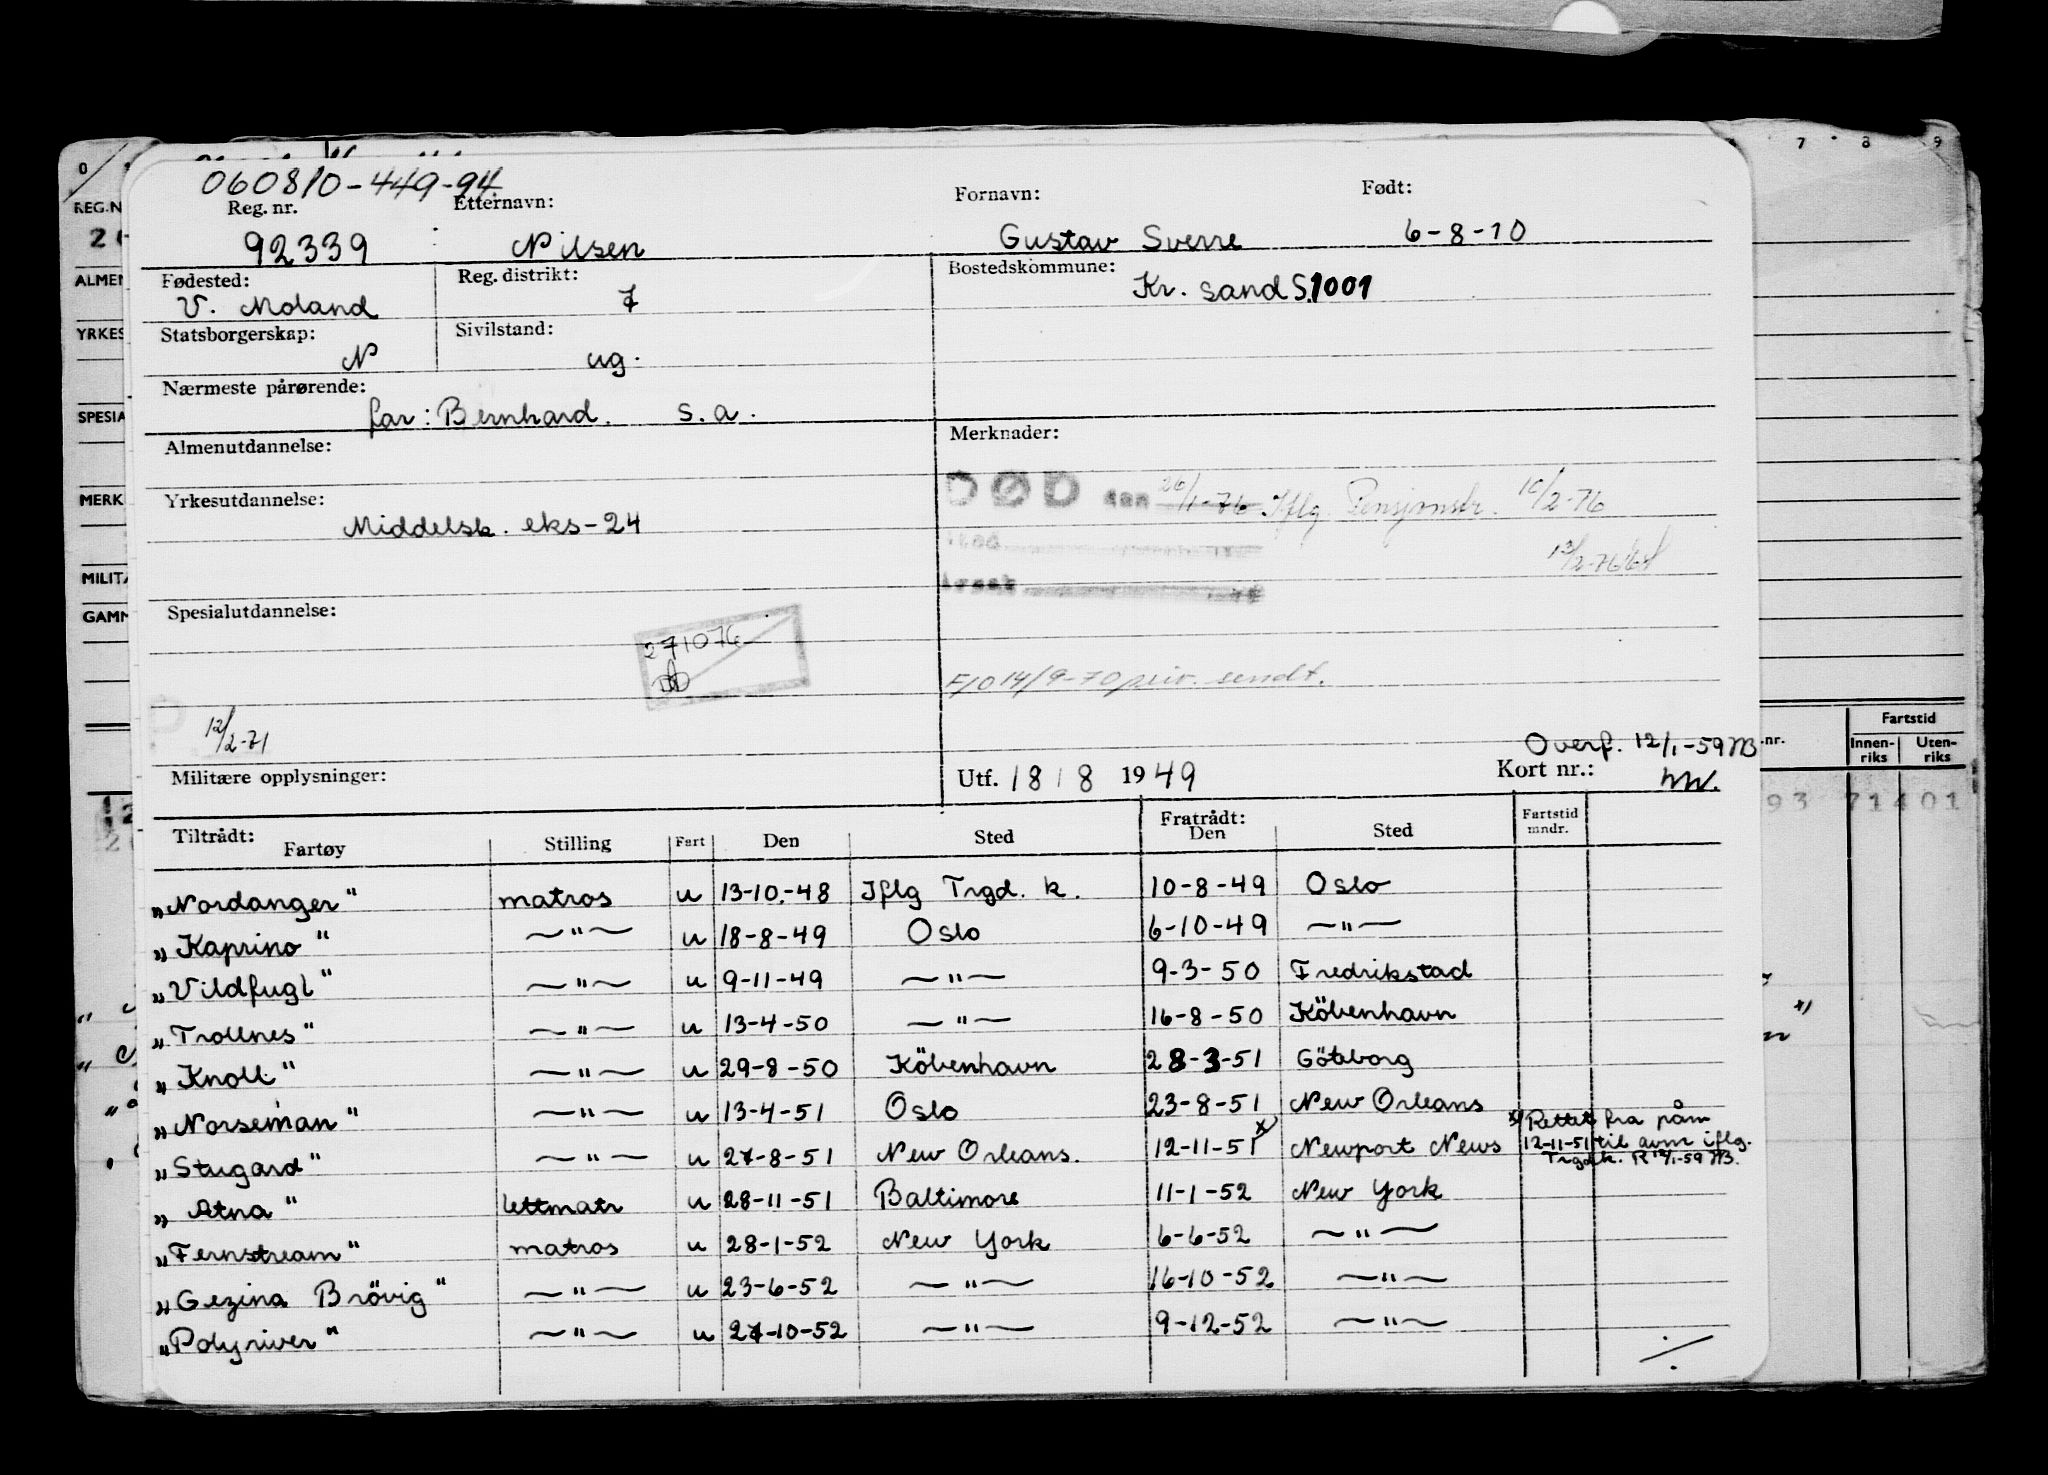 060810-449-94
Reg. nr. Etternavn: Fornavn: Født:
92339 Nilsen Gustav Sverre 6-8-10
Fødested: Reg. distrikt: Bostedskommune:
V. Moland 7 Kr. sand S. 1001
Statsborgerskap: Sivilstand:
N ug.
Nærmeste pårørende:
far: Bernhard. s.a.
Almenutdannelse: Merknader:
DØD den 26/1-76 Iflg. Pensjonstr. 10/2-76
Yrkesutdannelse:
Middelsk. eks-24
Spesialutdannelse:
271076
F/O 14/9-70 priv. sendt.
12/2-71
Overf. 12/1-59
Militære opplysninger: Utf. 18/8 1949 Kort nr.:
Tiltrådt: Fratrådt: Fartstid mndr.
Fartøy Stilling Fart Den Sted Den Sted
„Nordanger" matros u 13-10-48 Iflg Trgd. k. 10-8-49 Oslo
„Kaprino" —"— u 18-8-49 Oslo 6-10-49 —"—
„Vildfugl" —"— u 9-11-49 —"— 9-3-50 Fredrikstad
„Trollnes" —"— u 13-4-50 —"— 16-8-50 Köbenhavn
„Knoll" —"— u 29-8-50 Köbenhavn 28-3-51 Göteborg
„Norseman" —"— u 13-4-51 Oslo 23-8-51 New Orleans
„Stugard" —"— u 27-8-51 New Orleans. 12-11-51 x) Newport News x) Rettet fra påm
12-11-51 til avm iflg.
Trgd.k. R 12/1-59
„Atna" lettmatr u 28-11-51 Baltimore 11-1-52 New York
„Fernstream" matros u 28-1-52 New York 6-6-52 —"—
„Gezina Brövig" —"— u 23-6-52 —"— 16-10-52 —"—
„Polyriver" —"— u 27-10-52 —"— 9-12-52 —"—
./.
0 7 8 9
REG.N
ALMEN
YRKES
SPESIA
MERK
MILITÆ
GAMM
nr. Fartstid
Innen-riks Uten-riks
93 71401